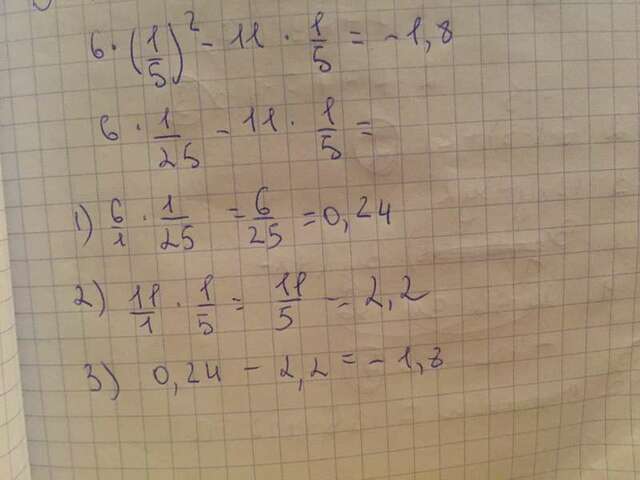 6 · (1/5)² - 11 · 1/5 = -1,8
6 · 1/25 - 11 · 1/5 =
1) 6/1 · 1/25 = 6/25 = 0,24
2) 11/1 · 1/5 = 11/5 = 2,2
3) 0,24 - 2,2 = -1,8